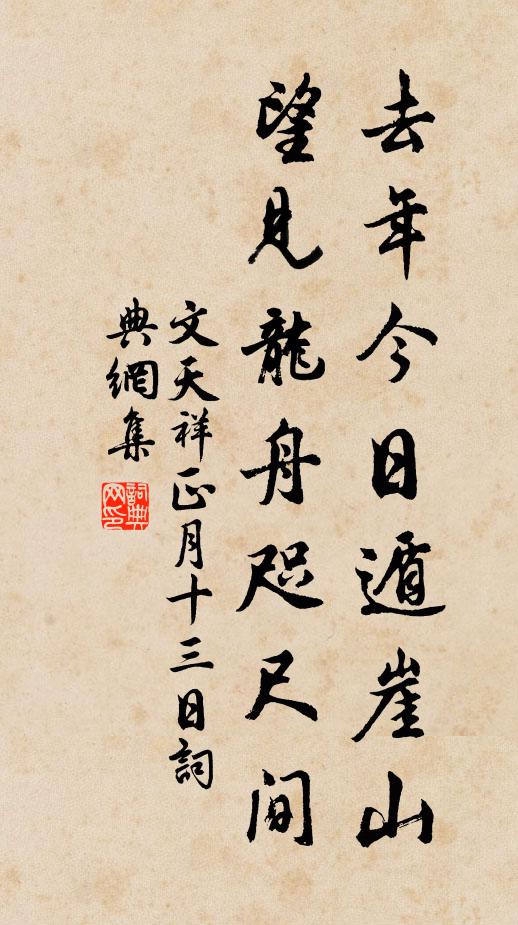 去年今日遁崖山
望見龍舟咫尺間
文天祥正月十三日詞
典網集
詞典網印